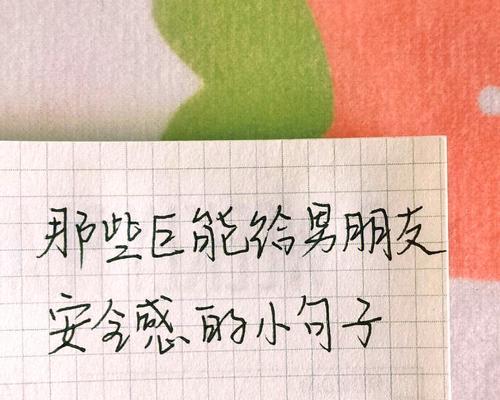 那些巨能给男朋友
安全感的小句子